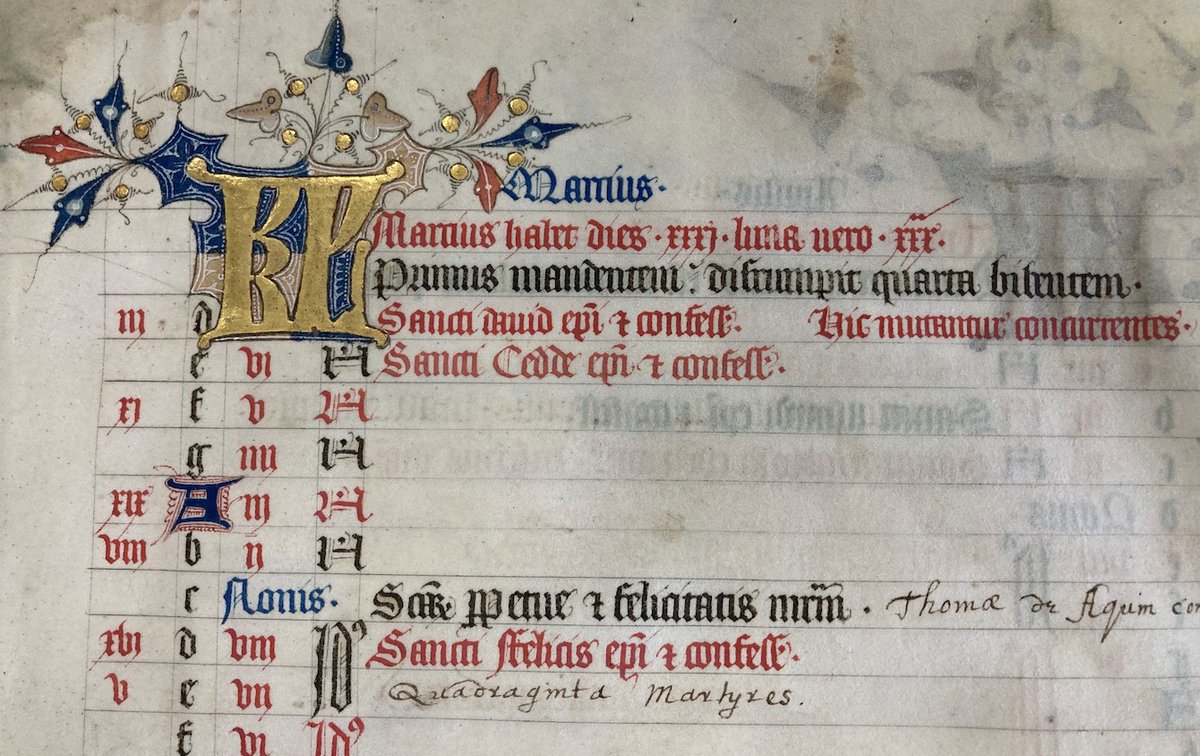 KL
Martius·
Martius habet dies ·xxxj· luna uero ·xxx·
Primus mandentem : disrumpit quarta bibentem·
iij d Sancti dauid ep̄i ⁊ confess̄. Hic mutantur concurrentes·
e vi N Sancti Cedde ep̄i ⁊ confess̄.
xi f v N
g iiij N
xix A iij N
viij b ij N
c Nonis· Sc̄ar̄ ꝑpetue ⁊ felicitatis mr̄m̄ · Thomæ de Aquin con
xvi d viij Id⁹ Sancti ffelicis ep̄i ⁊ confess̄·
v e vij Quadraginta Martyres.
f vi Id⁹